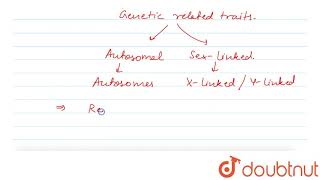 Genetic related traits.
Autosomal Sex-linked.
Autosomes X-linked / Y-linked
⇒ Re
doubtnut